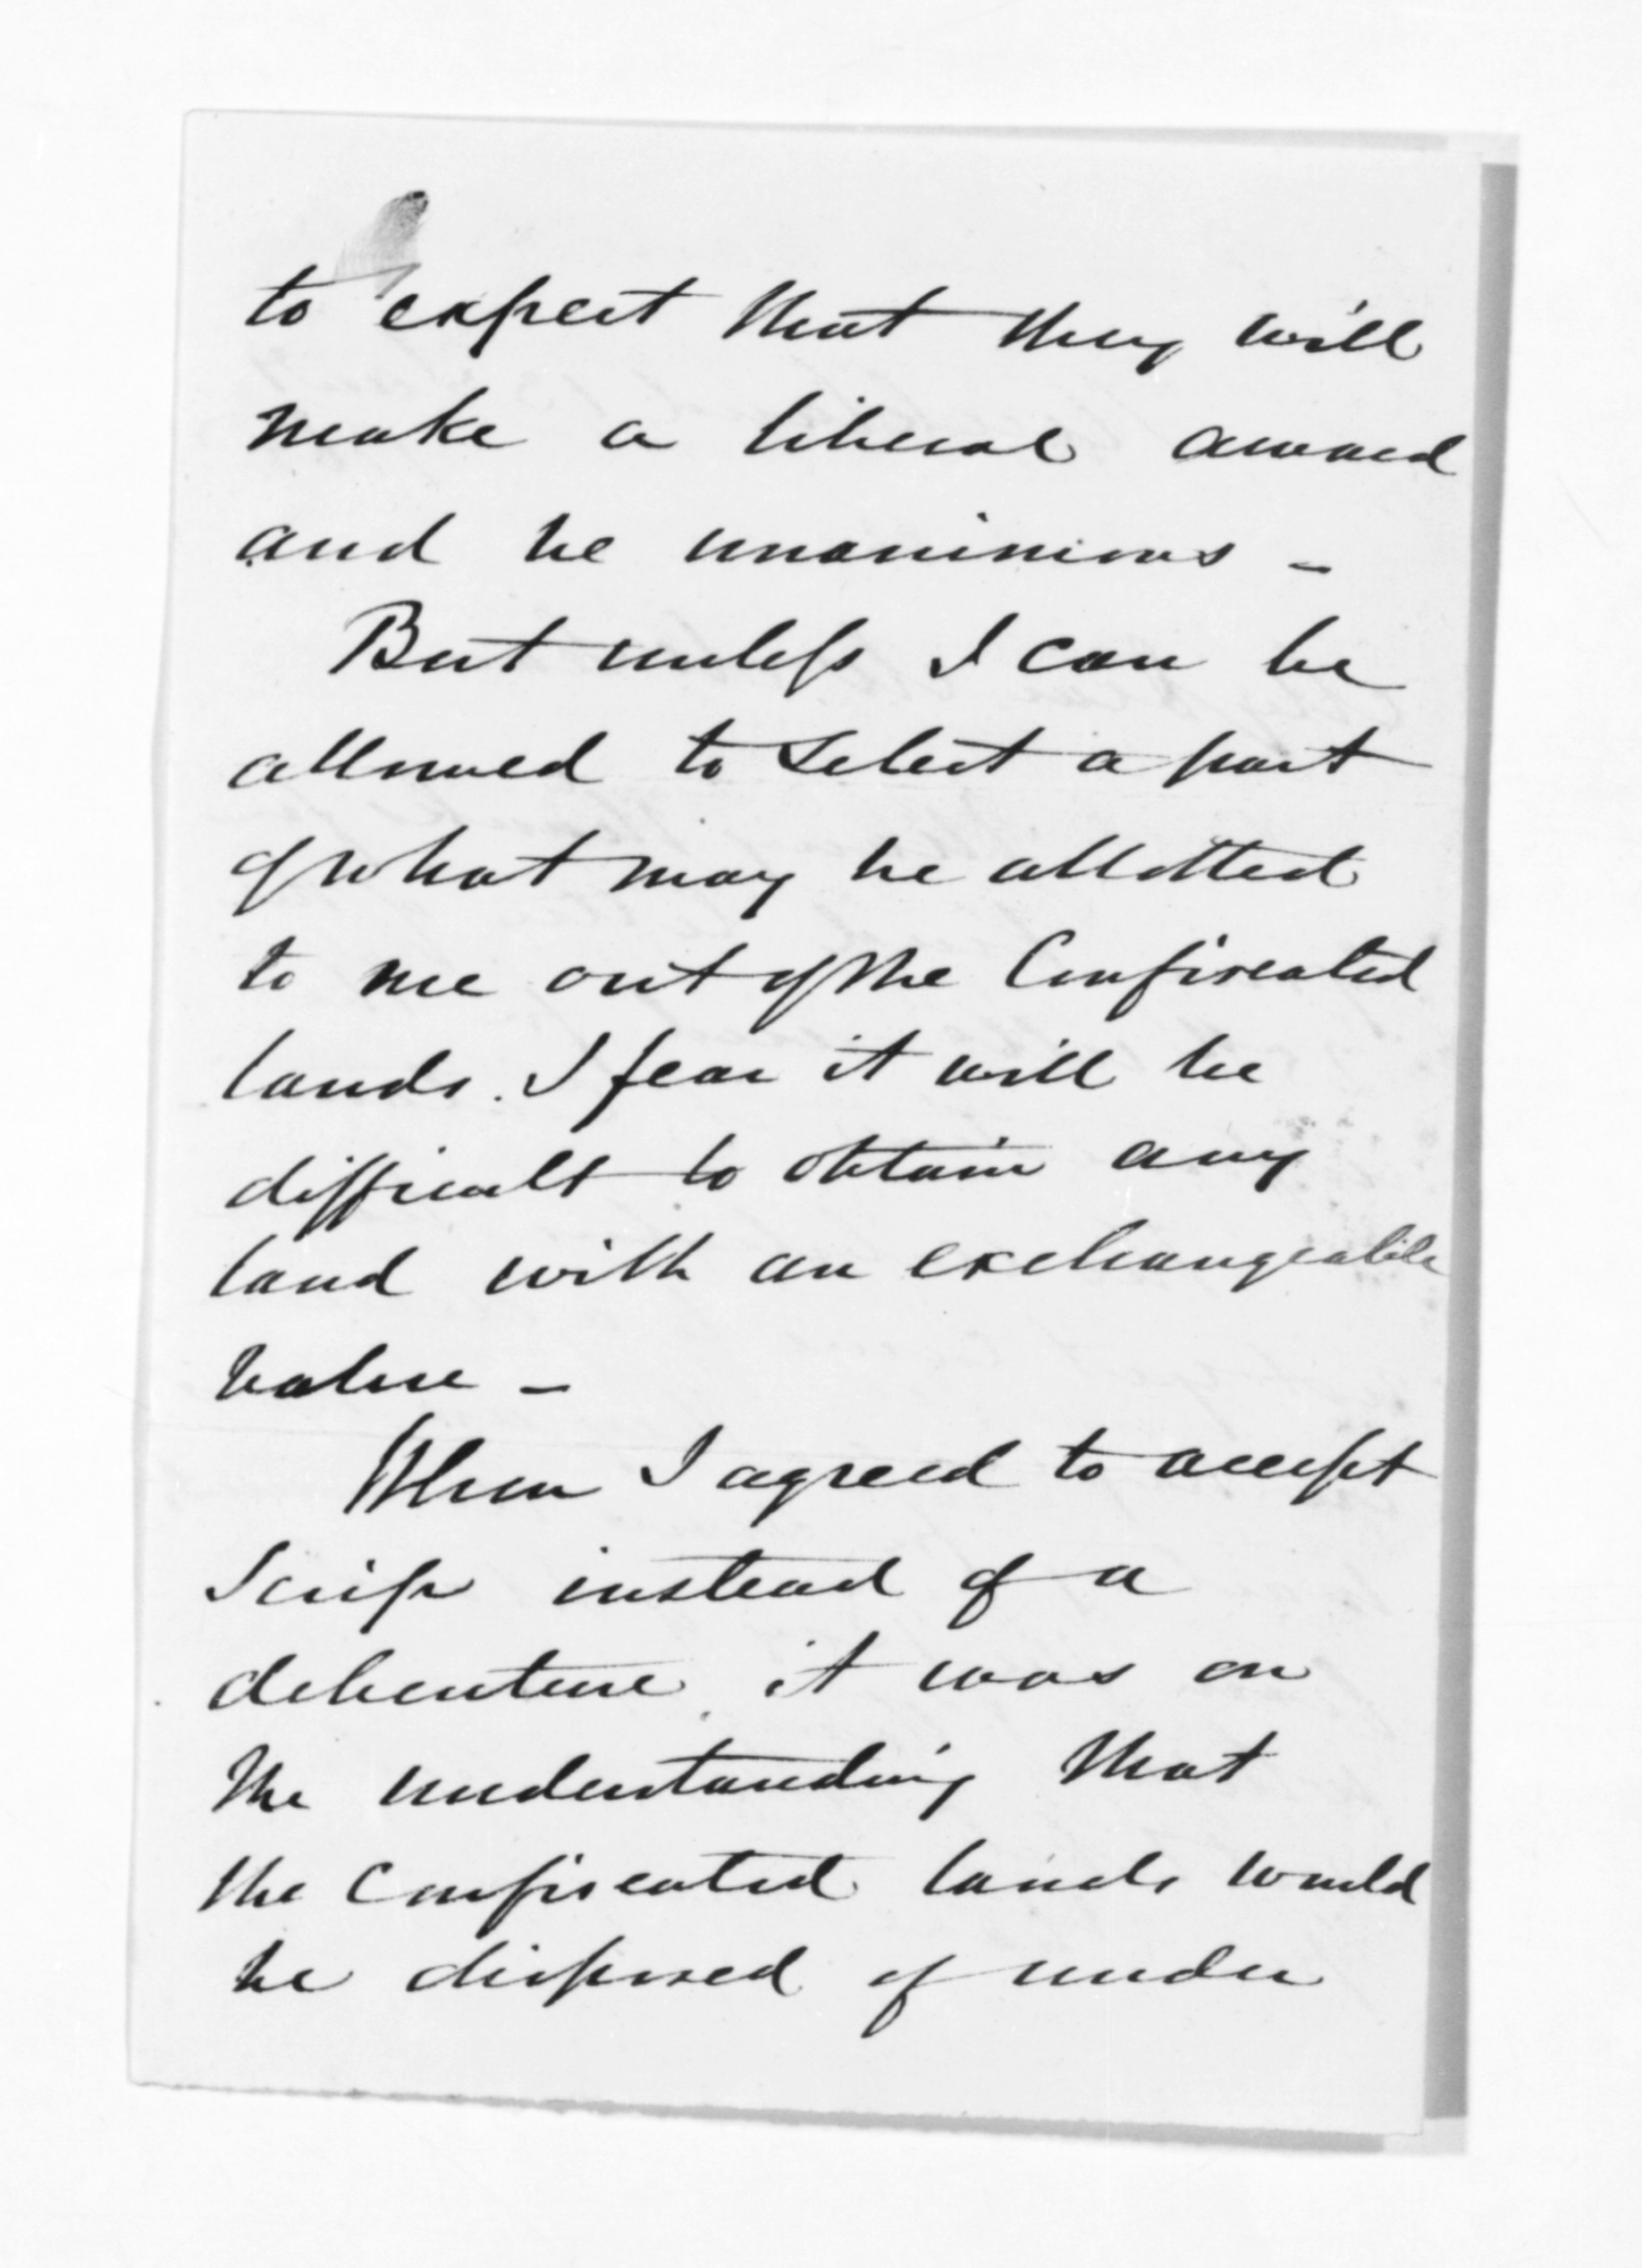 to expect that they will
make a liberal award
and be unanimous -
But unless I can be
allowed to select a part
of what may be allotted
to me out of the Confiscated
lands. I fear it will be
difficult to obtain any
land with an exchangeable
value -
When I agreed to accept
Scrip instead of a
debenture, it was on
the understanding that
the Confiscated lands would
be disposed of under